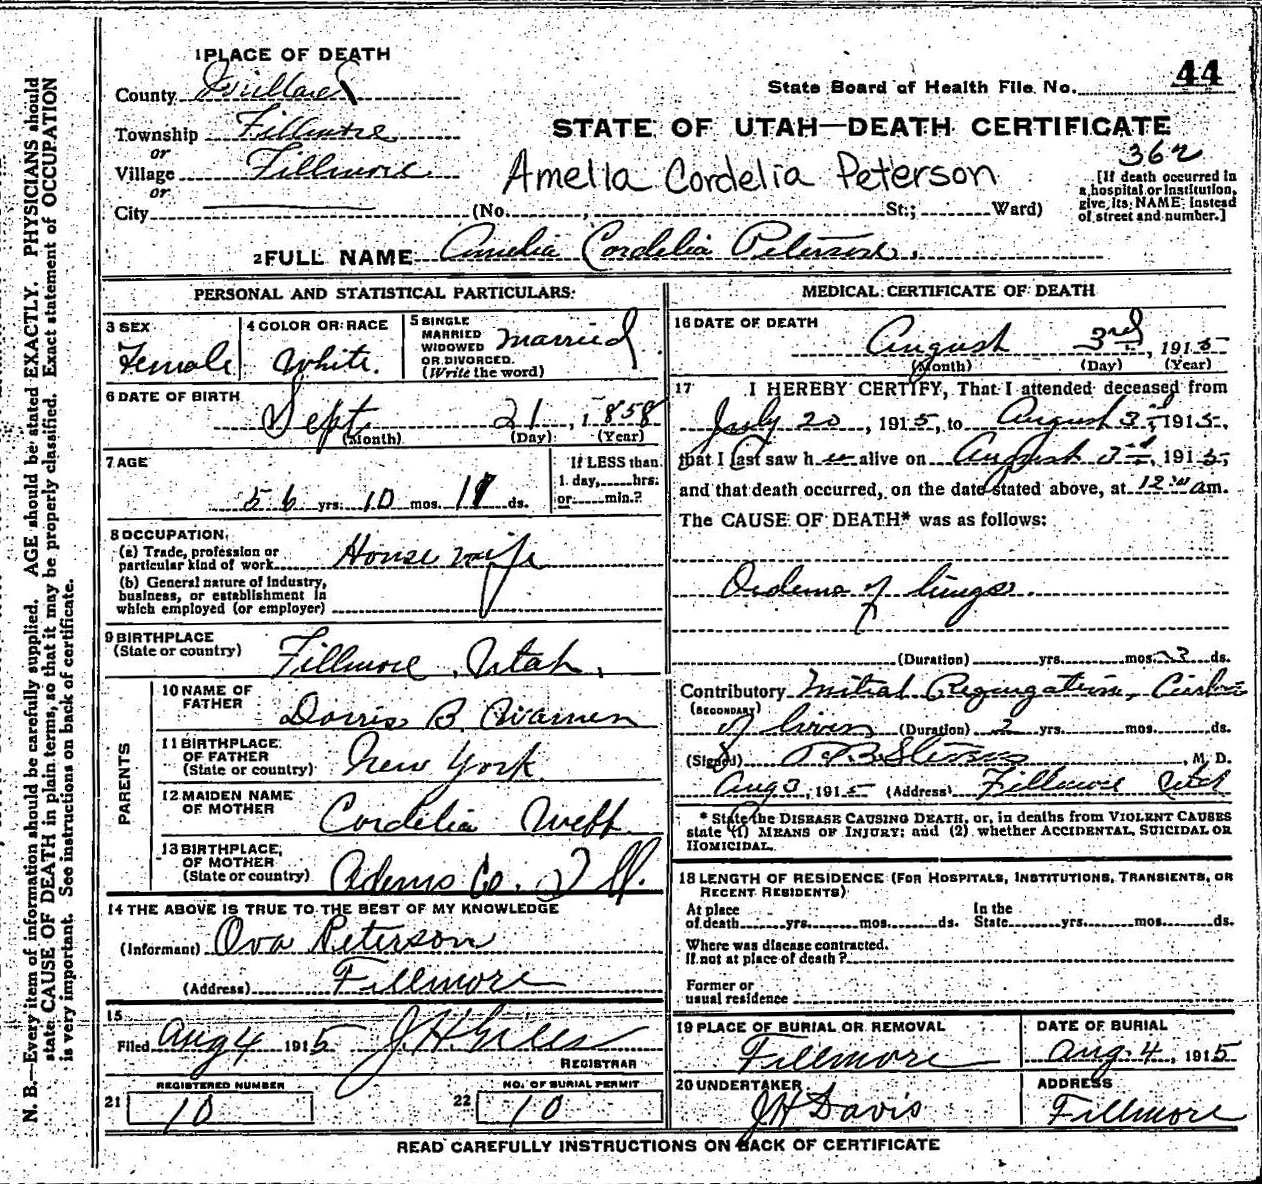 1 PLACE OF DEATH
County Millard
State Board of Health File No. 44
Township Fillmore
or
Village Fillmore
or
STATE OF UTAH—DEATH CERTIFICATE
362
Amelia Cordelia Peterson
[If death occurred in
a hospital or institution,
give its NAME instead
of street and number.]
City (No. , St.; Ward)
2 FULL NAME Amelia Cordelia Peterson.
PERSONAL AND STATISTICAL PARTICULARS:
3 SEX
Female
4 COLOR OR RACE
White.
5 SINGLE
MARRIED
WIDOWED
OR DIVORCED.
(Write the word)
Married
6 DATE OF BIRTH
Sept 21, 1858
(Month) (Day) (Year)
7 AGE
56 yrs. 10 mos. ds.
If LESS than
1 day, hrs.
or min.?
8 OCCUPATION.
(a) Trade, profession or
particular kind of work House wife
(b) General nature of industry,
business, or establishment in
which employed (or employer)
9 BIRTHPLACE
(State or country) Fillmore, Utah.
PARENTS
10 NAME OF
FATHER B.
11 BIRTHPLACE
OF FATHER
(State or country) New York.
12 MAIDEN NAME
OF MOTHER Cordelia Webb
13 BIRTHPLACE
OF MOTHER
(State or country) Adams Co. Ill.
14 THE ABOVE IS TRUE TO THE BEST OF MY KNOWLEDGE
(Informant) Ova Peterson
(Address) Fillmore
15
Filed Aug 4 1915 J.H. Giles
REGISTRAR
REGISTERED NUMBER
21 10
NO. OF BURIAL PERMIT
22 10
MEDICAL CERTIFICATE OF DEATH
16 DATE OF DEATH
August 3rd, 1915
(Month) (Day) (Year)
17 I HEREBY CERTIFY, That I attended deceased from
July 20, 1915, to August 3rd, 1915,
that I last saw h er alive on August 3rd, 1915,
and that death occurred, on the date stated above, at 12 am.
The CAUSE OF DEATH* was as follows:
Oedema of lungs.
(Duration) yrs. mos. 3 ds.
Contributory Mitral Regurgitation,
(SECONDARY)
of liver (Duration) 2 yrs. mos. ds.
(Signed) M. D.
Aug 3, 1915 (Address) Fillmore Utah
* State the DISEASE CAUSING DEATH, or, in deaths from VIOLENT CAUSES
state (1) MEANS OF INJURY; and (2) whether ACCIDENTAL, SUICIDAL OR
HOMICIDAL.
18 LENGTH OF RESIDENCE (FOR HOSPITALS, INSTITUTIONS, TRANSIENTS, OR
RECENT RESIDENTS)
At place
of death yrs. mos. ds.
In the
State yrs. mos. ds.
Where was disease contracted.
if not at place of death?
Former or
usual residence
19 PLACE OF BURIAL OR REMOVAL
Fillmore
DATE OF BURIAL
Aug. 4, 1915
20 UNDERTAKER
J H Davis
ADDRESS
Fillmore
READ CAREFULLY INSTRUCTIONS ON BACK OF CERTIFICATE
N. B.—Every item of information should be carefully supplied. AGE should be stated EXACTLY. PHYSICIANS should
state CAUSE OF DEATH in plain terms, so that it may be properly classified. Exact statement of OCCUPATION
is very important. See instructions on back of certificate.